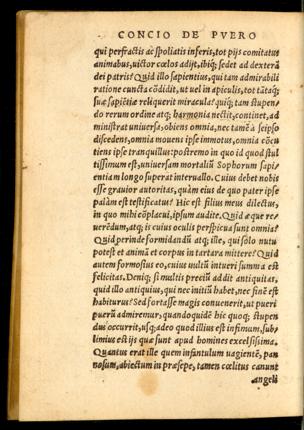 CONCIO DE PVERO
qui perfractis ac spoliatis inferis, tot pijs comitatus
animabus, uictor cœlos adijt, ibiq; sedet ad dexterã
dei patris? Quid illo sapientius, qui tam admirabili
ratione cuncta cõdidit, ut uel in apiculis, tot tãtaq;
suæ sapiẽtiæ reliquerit miracula? quiq; tam stupen
do rerum ordine atq; harmonia nectit, continet, ad
ministrat uniuersa, obiens omnia, nec tamẽ à seipso
discedens, omnia mouens ipse immotus, omnia cõcu
tiens ipse tranquillus: postremo in quo id quod stul
tissimum est, uniuersam mortaliũ Sophorum sapi-
entiam longo superat interuallo. Cuius debet nobis
esse grauior autoritas, quàm eius de quo pater ipse
palàm est testificatus? Hic est filius meus dilectus,
in quo mihi cõplacui, ipsum audite. Quid æque re/
uerẽdum, atq; is cuius oculis perspicua sunt omnia?
Quid perinde formidandũ atq; ille, qui solo nutu
potest et animã et corpus in tartara mittere? Quid
autem formosius eo, cuius uultũ intueri summa est
felicitas. Deniq; si multis preciũ addit antiquitas,
quid illo antiquius, qui nec initiũ habet, nec finẽ est
habiturus? Sed fortasse magis conuenerit, ut pueri
puerũ admiremur, quandoquidẽ hic quoq; stupen
dus occurrit, usq; adeo quod illius est infimum, sub/
limius est ijs quæ sunt apud homines excelsissima.
Quantus erat ille quem infantulum uagientẽ, pan
nosum, abiectum in præsepe, tamen cœlitus canunt
angeli